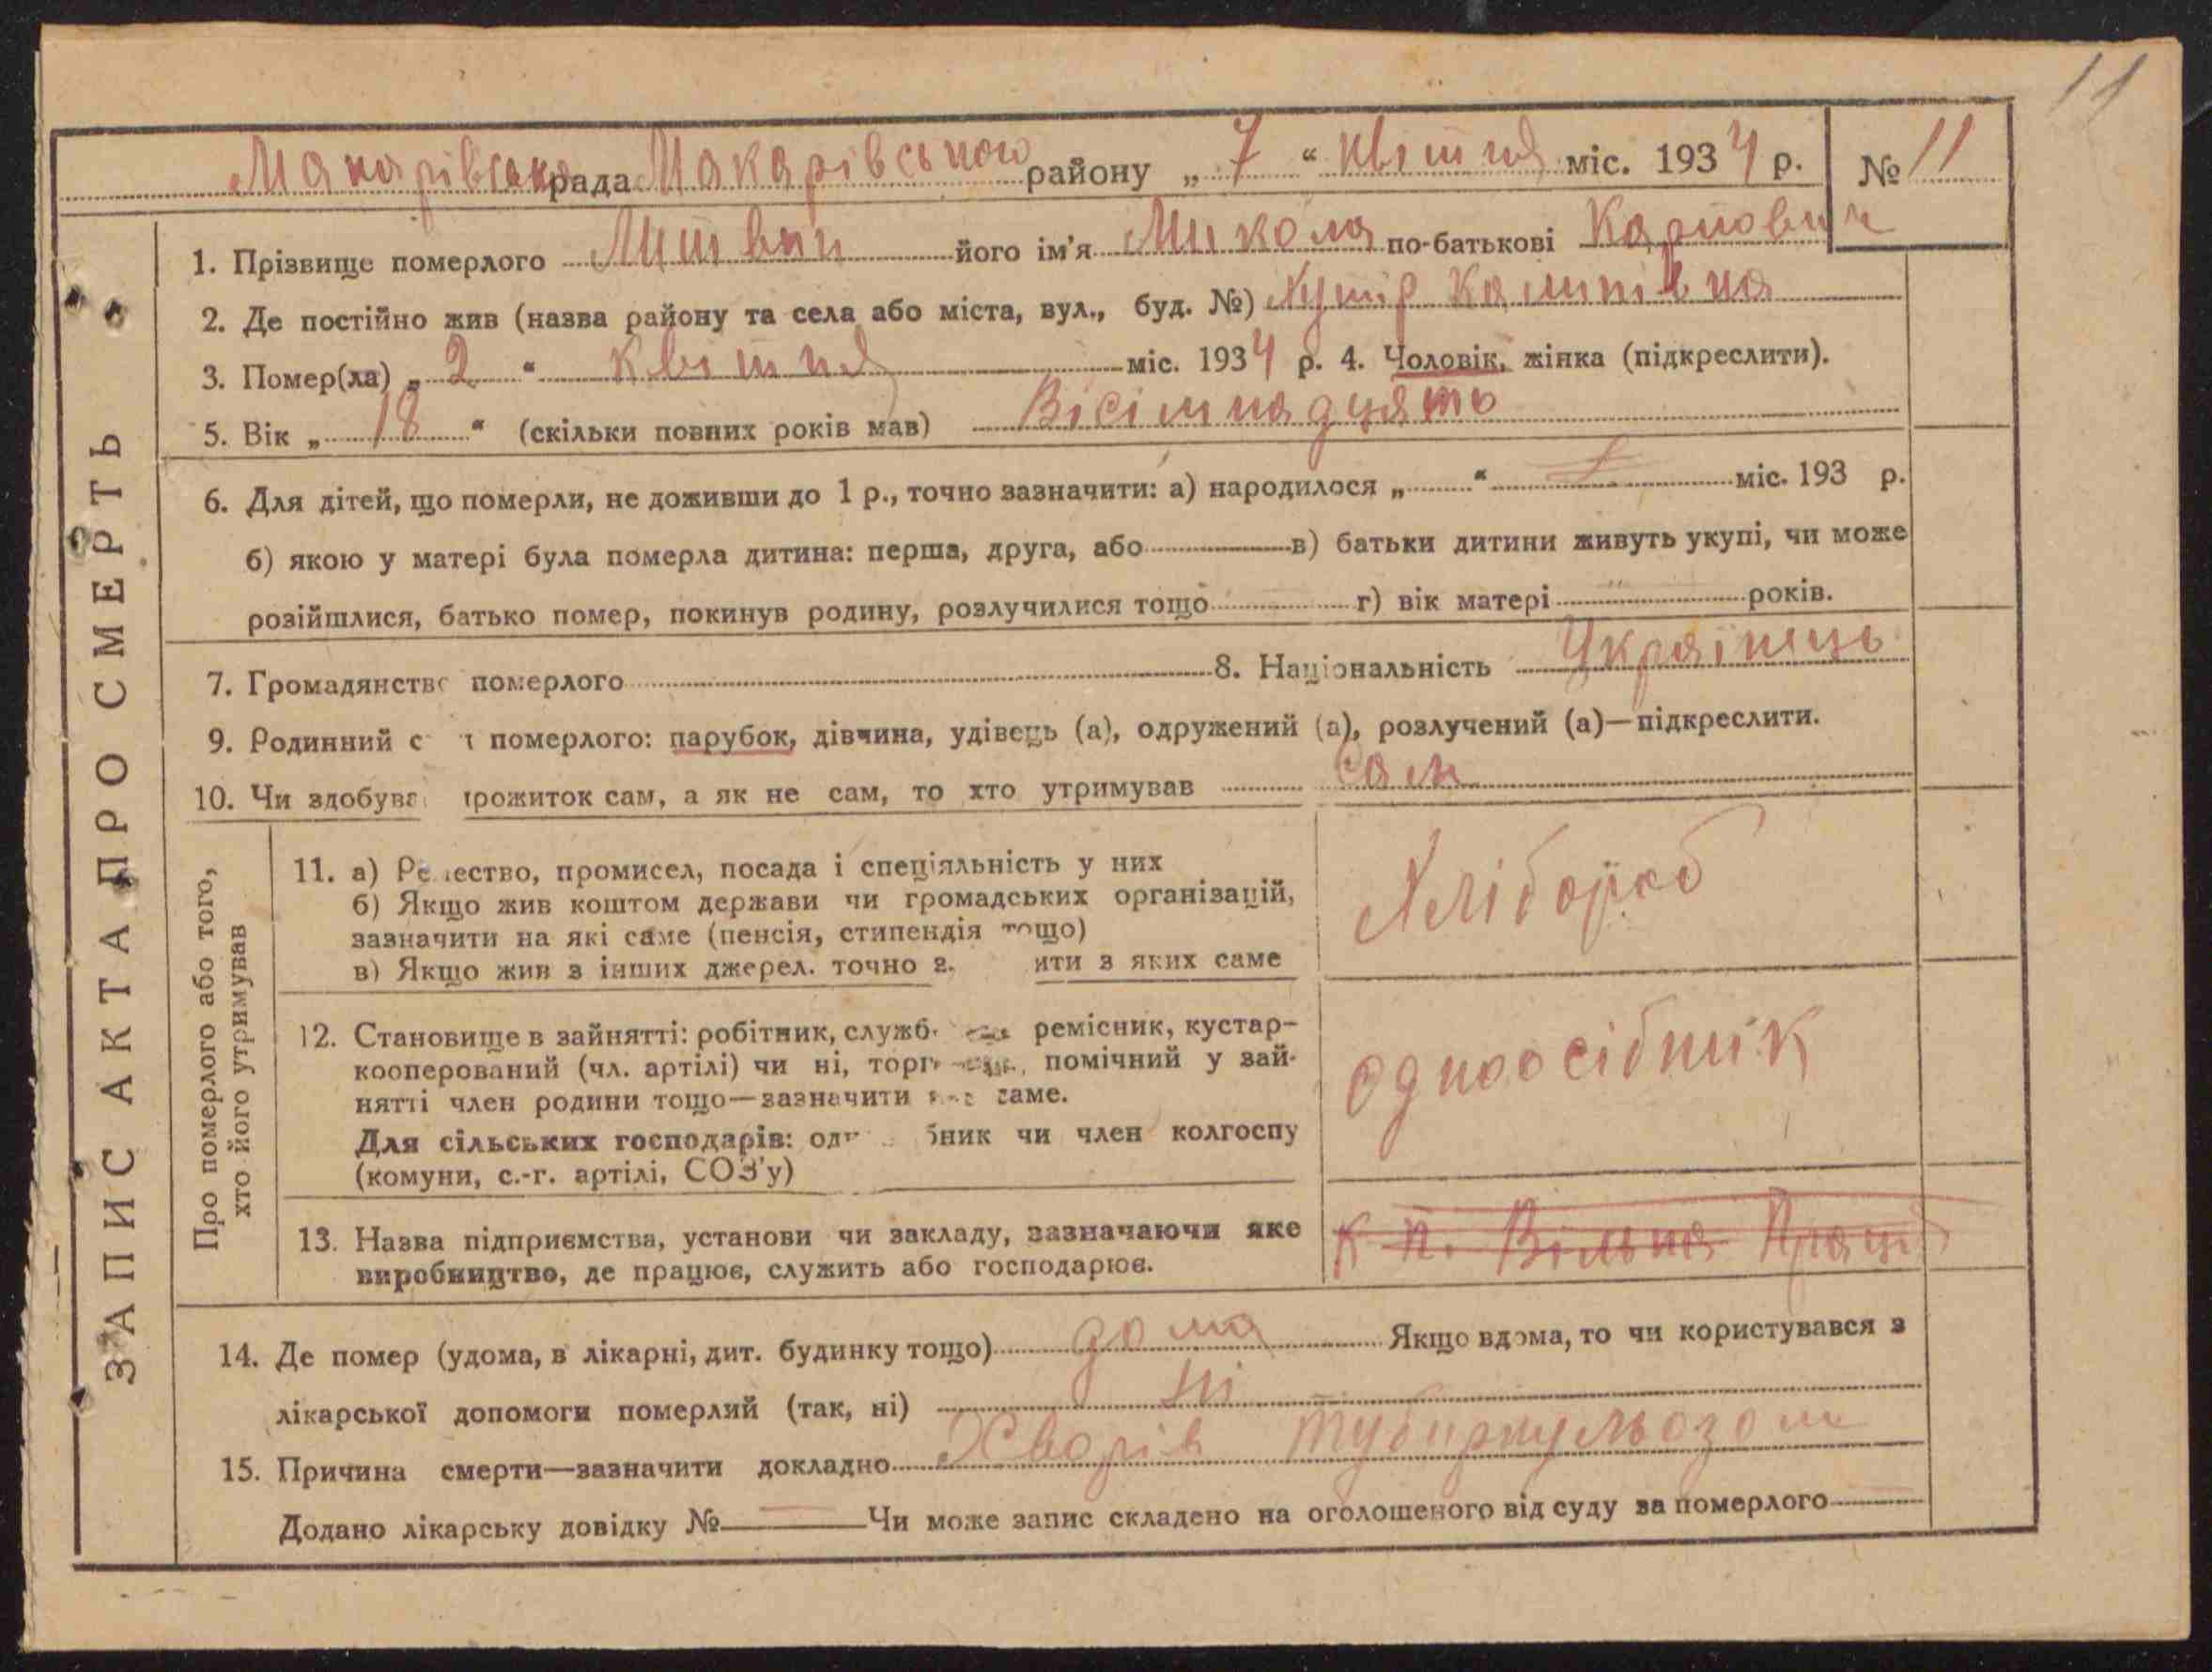 11
Макарівська рада Макарівського району „ 7 “ квітня міс. 1934 р. № 11
1. Прізвище померлого Литвин його ім'я Микола по-батькові Карпович
2. Де постійно жив (назва району та села або міста, вул., буд. №) Хутір
3. Помер(ла) „ 2 “ квітня міс. 1934 р. 4. Чоловік, жінка (підкреслити).
5. Вік „ 18 “ (скільки повних років мав) Вісімнадцять
6. Для дітей, що померли, не доживши до 1 р., точно зазначити: а) народилося „ “ міс. 193 р.
б) якою у матері була померла дитина: перша, друга, або в) батьки дитини живуть укупі, чи може
розійшлися, батько помер, покинув родину, розлучилися тощо г) вік матері років.
7. Громадянство померлого 8. Національність Українець
9. Родинний с т померлого: парубок, дівчина, удівець (а), одружений (а), розлучений (а)—підкреслити.
10. Чи здобував прожиток сам, а як не сам, то хто утримував сам
ЗАПИС АКТА ПРО СМЕРТЬ
Про померлого або того,
хто його утримував
11. а) Ремество, промисел, посада і спеціяльність у них
б) Якщо жив коштом держави чи громадських організацій,
зазначити на які саме (пенсія, стипендія тощо)
в) Якщо жив з інших джерел. точно з ити з яких саме
Хлібороб
12. Становище в зайнятті: робітник, служб ремісник, кустар-
кооперований (чл. артілі) чи ні, торг , помічний у зай-
нятті член родини тощо—зазначити саме.
Для сільських господарів: одн бник чи член колгоспу
(комуни, с.-г. артілі, СОЗ'у)
одноосібник
13. Назва підприємства, установи чи закладу, зазначаючи яке
виробництво, де працює, служить або господарює.
Вільна Праця
14. Де помер (удома, в лікарні, дит. будинку тощо) дома Якщо вдома, то чи користувався з
лікарської допомоги померлий (так, ні) ні
15. Причина смерти—зазначити докладно Хворів тубиркульозом
Додано лікарську довідку № Чи може запис складено на оголошеного від суду за померлого